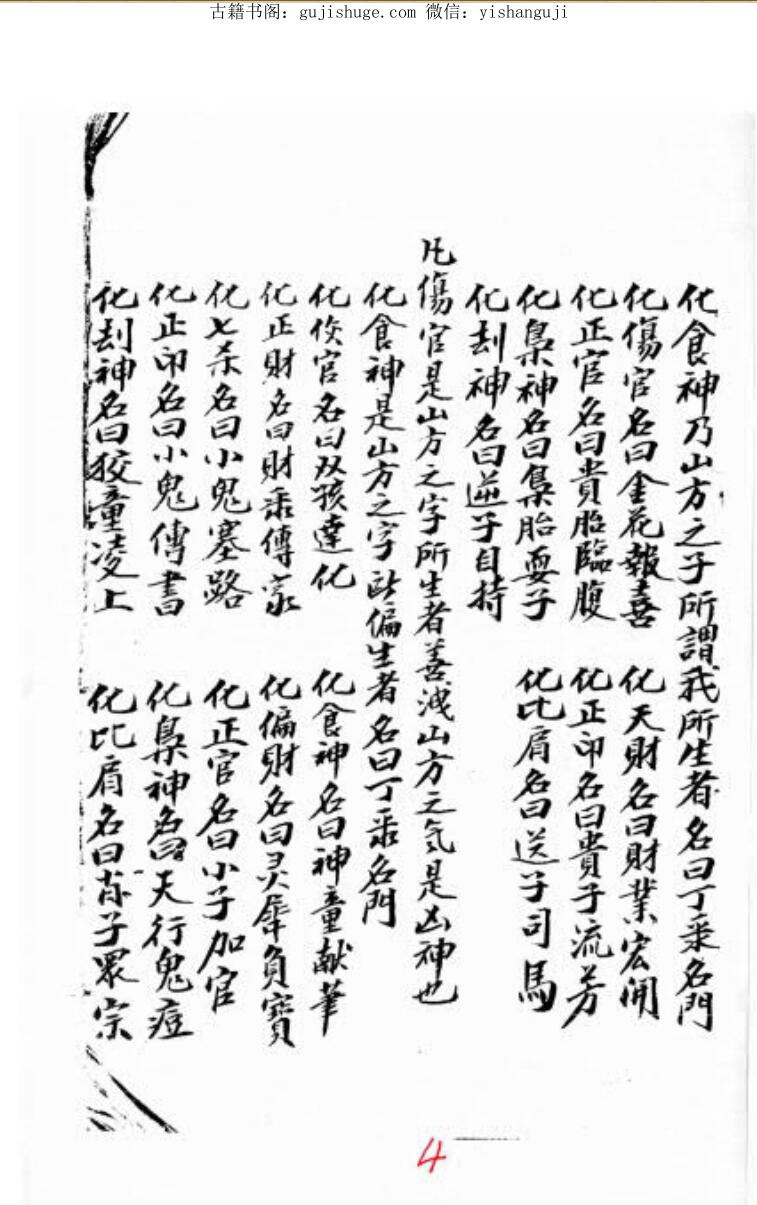 古籍书阁：gujishuge.com 微信：yishanguji
化食神乃山方之子所謂我所生者名曰丁乘名門
化傷官名曰金花報喜 化天財名曰財業宏開
化正官名曰貴胎臨腹 化正印名曰貴子流芳
化梟神名曰梟胎耍子 化比肩名曰送子司馬
化刦神名曰逆子自持
凡傷官是山方之字所生者善洩山方之气是凶神也
化食神是山方之字 偏生者名曰丁乘名門
化傷官名曰双孩達化 化食神名曰神童献華
化正財名曰財乘傳家 化偏財名曰灵犀負寶
化七杀名曰小鬼塞路 化正官名曰小子加官
化正印名曰小鬼傳書 化梟神名曰天行鬼痘
化刦神名曰狡童凌上 化比肩名曰肖子眾宗
4